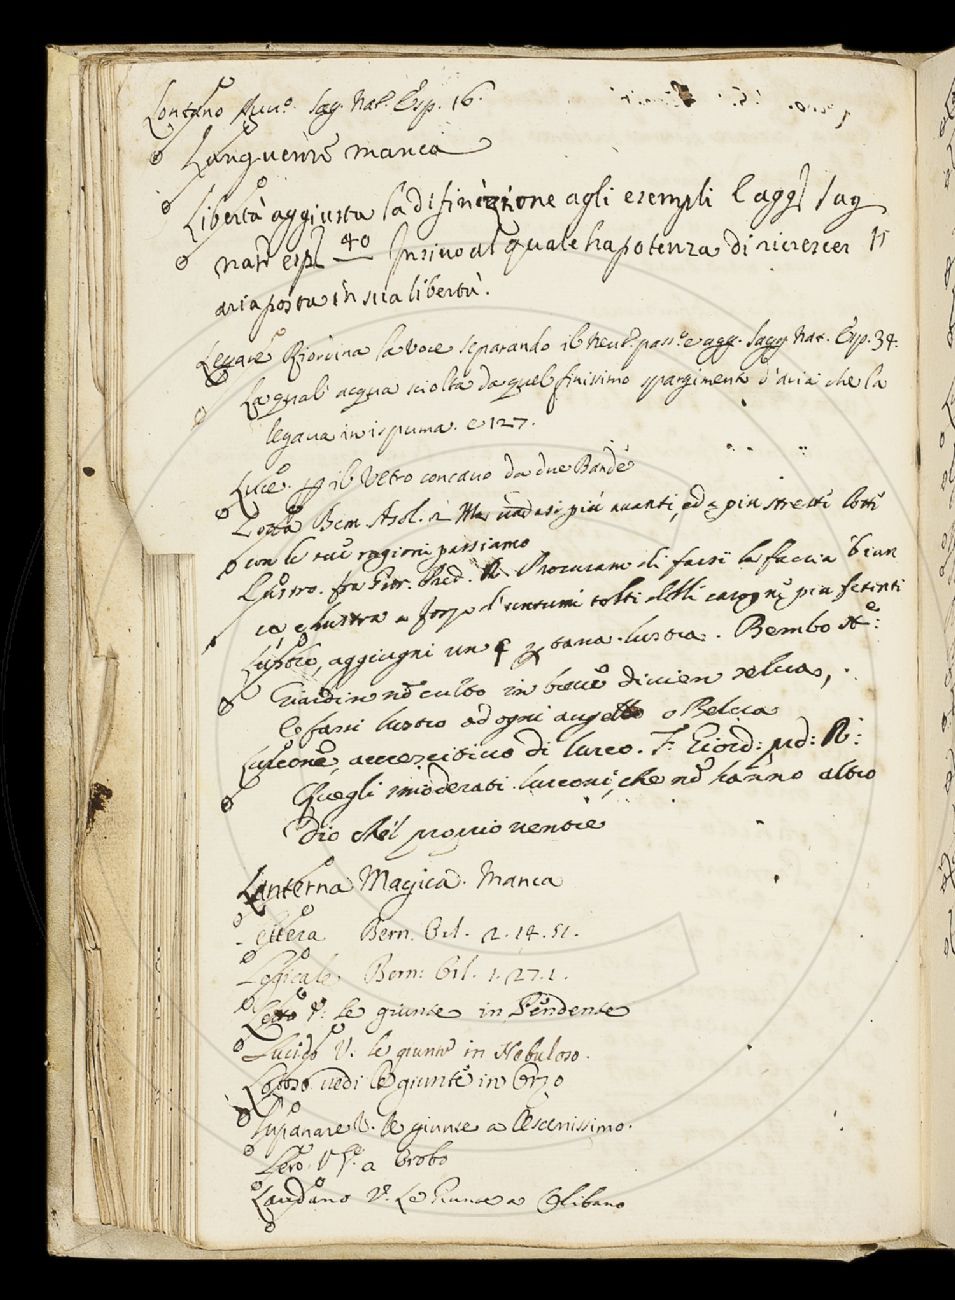 Lontano Avv.o Sag. Nat. Esp. 16.
Languenre manca
Libertà aggiusta la difinizione agli esempli e agg. Sag
nat. esp. 40 Insino al quale ha potenza di ricrescer l'
aria posta in sua libertà.
Legare Riordina la voce separando il neut. pass.o e agg. Sagg. Nat. Esp. 34.
La qual' acqua sciolta da quel finissimo spargimento d'aria che la
legava in ispuma. e 127.
Luce. il Vetro concavo da due Bande
Lotta Bem. Asol. 2 Ma vadasi più avanti, ed a più stretti lotti
con le sue ragioni passiamo
Lustro. fra Gior. Pred. R. Procuran di farsi la faccia bian
ca, e lustra a forza d' untumi tolti dalli carogne più fetenti
Lustro, aggiugni un tana. lustra. Bembo st:
Giardin nõ culto in breve divien selva,
E farsi lustro ad ogni augello o Belva
Lurcone, accrescitivo di lurco. F. Giord: pred: R:
Quegli smoderati lurconi, che nõ hanno altro
Dio che'l proprio ventre
Lanterna Magica. Manca
Lettera Bern. Orl. 2. 14. 51.
Logicale. Bern: Orl. 1. 27. 1.
V. le giunte in Pendente
Lucido V. le giunte in Nebuloso.
vedi le giunte in Orzo
V. le giunte a
Lero. V. a Orobo
Laudano V. Le Giunte a Olibano